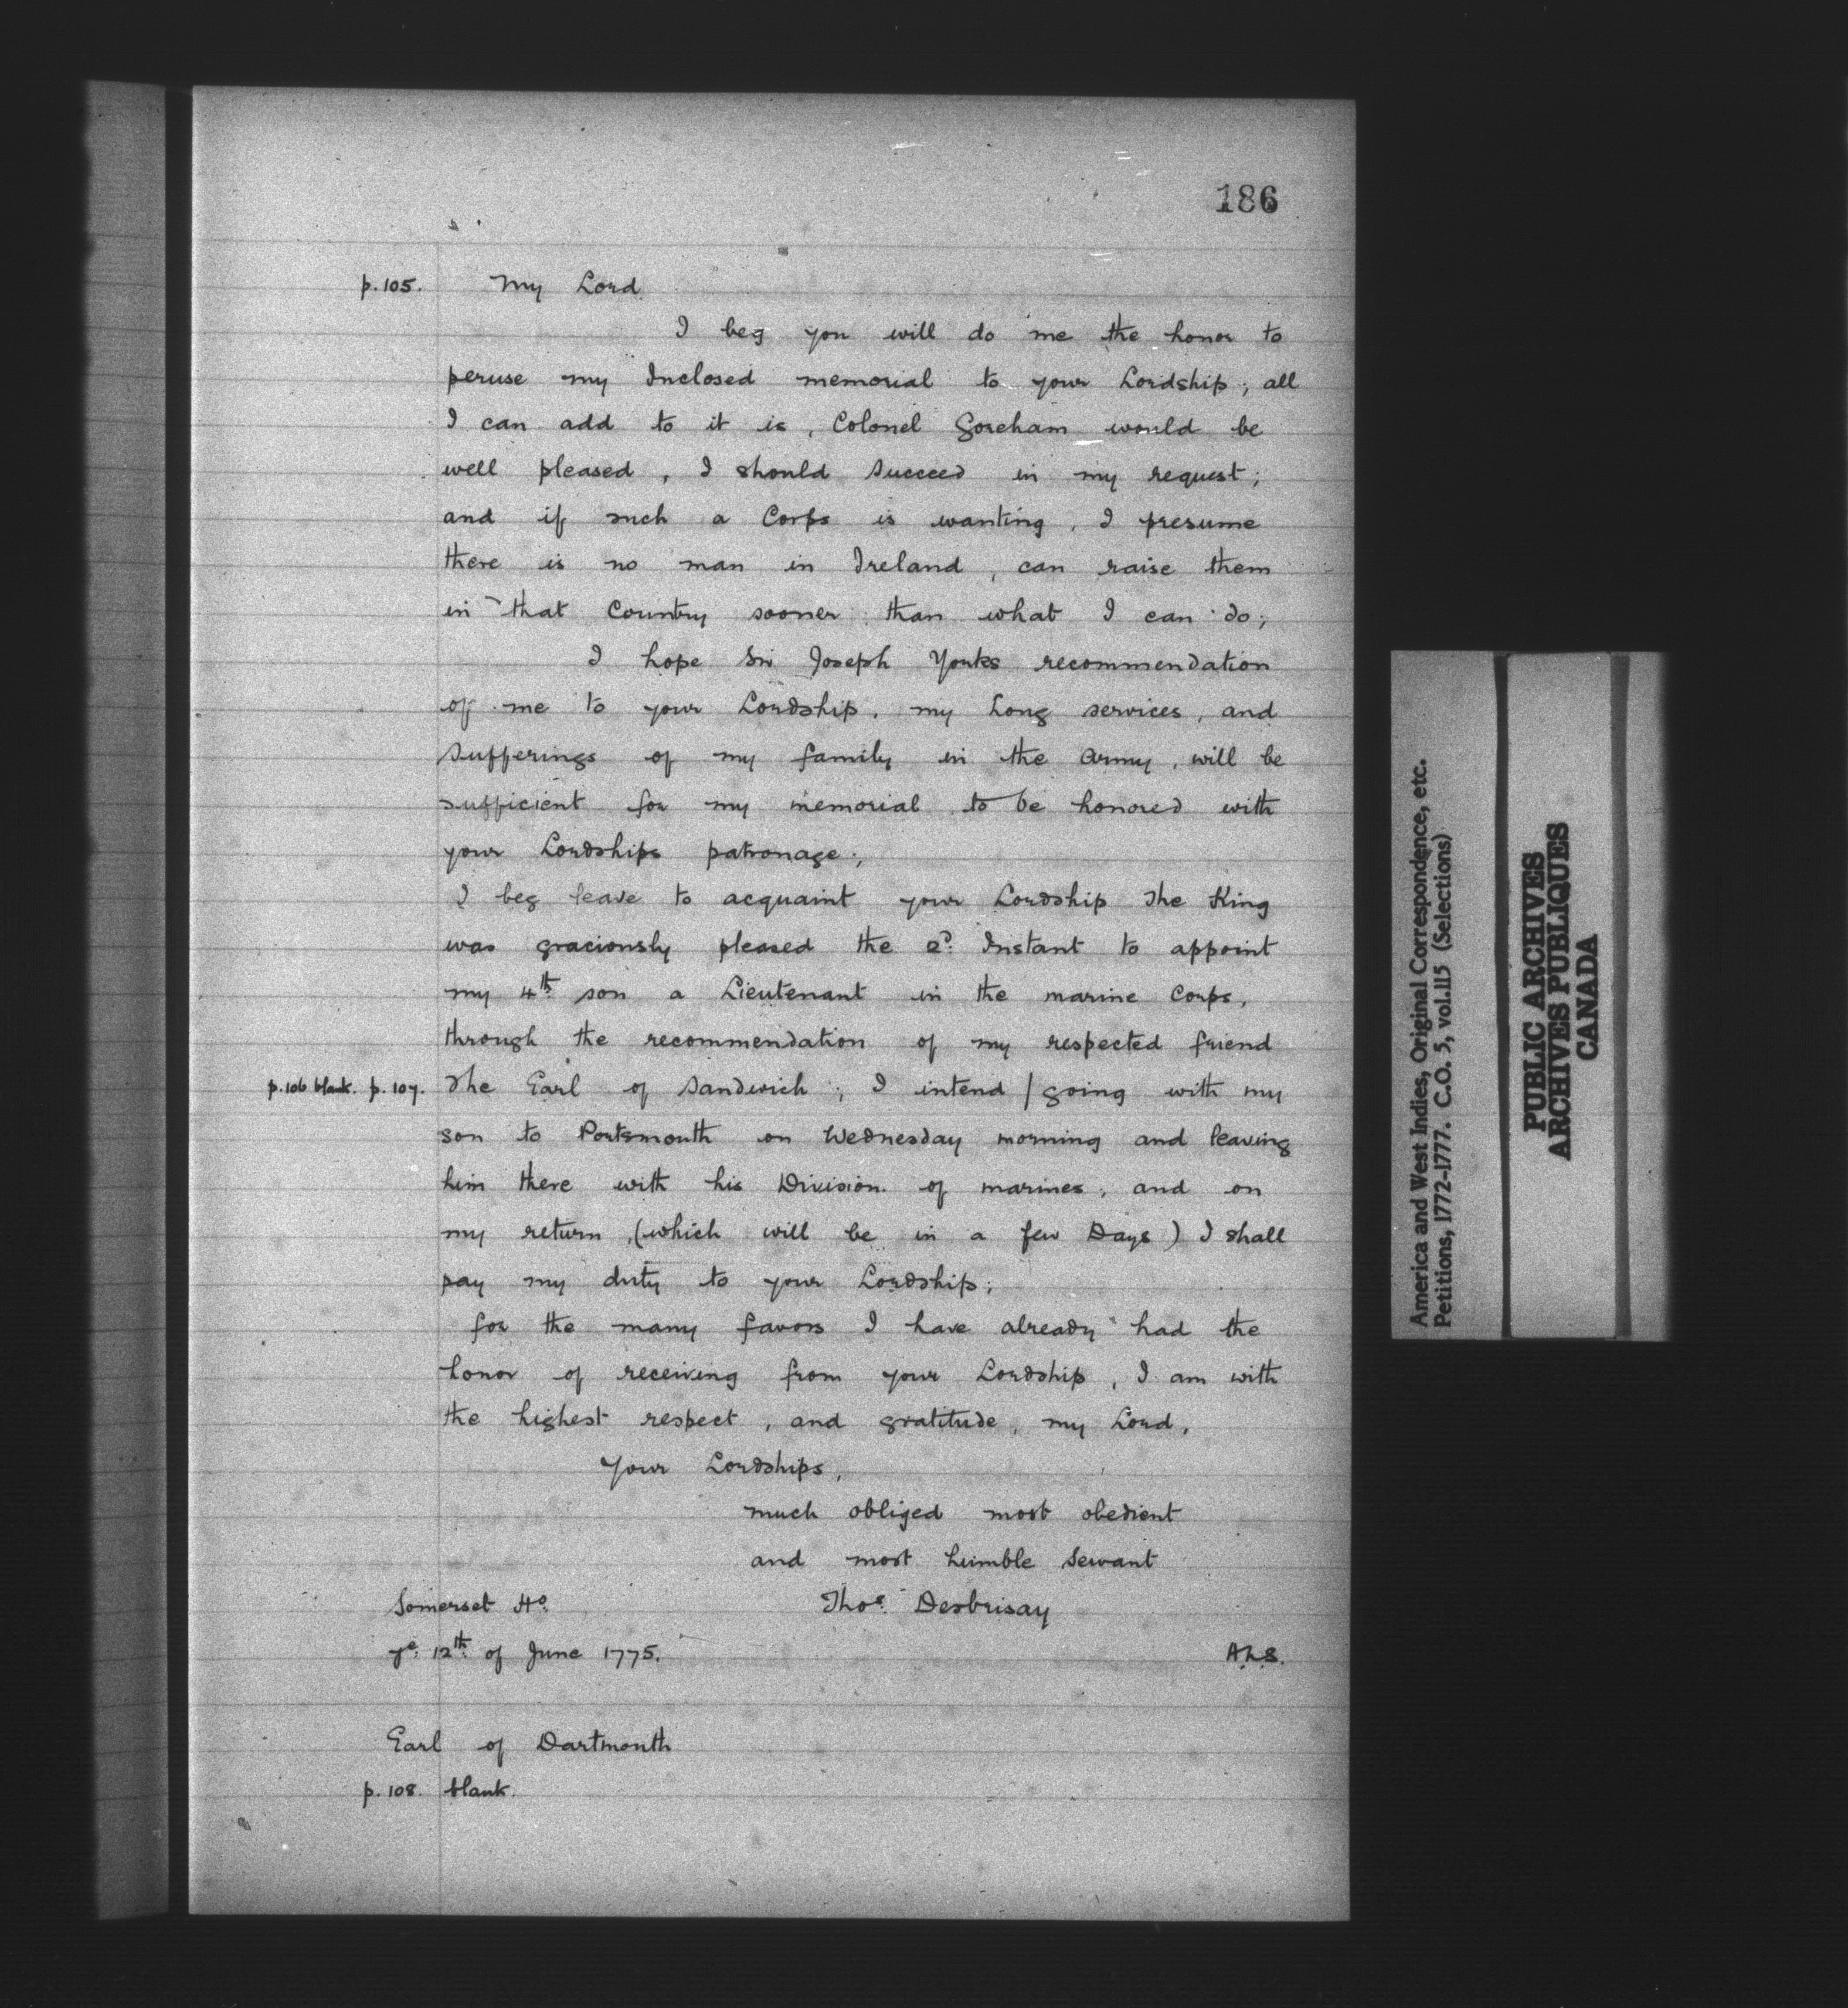 186
p.105. My Lord
I beg you will do me the honor to
peruse my Inclosed memorial to your Lordship; all
I can add to it is, Colonel Goreham would be
well pleased, I should succeed in my request;
and if such a Corps is wanting, I presume
there is no man in Ireland, can raise them
in that Country sooner than what I can do;
I hope Sir Joseph Yorks recommendation
of me to your Lordship, my Long services, and
sufferings of my family in the Army, will be
sufficient for my memorial to be honored with
your Lordships patronage;
I beg leave to acquaint your Lordship The King
was graciously pleased the 2d. Instant to appoint
my 4th. son a Lieutenant in the marine Corps,
through the recommendation of my respected friend
p.106 blank. p.107. The Earl of Sandwich; I intend / going with my
son to Portsmouth on Wednesday morning and leaving
him there with his Division of marines, and on
my return, (which will be in a few Days) I shall
pay my duty to your Lordship;
for the many favors I have already had the
honor of receiving from your Lordship, I am with
the highest respect, and gratitude, my Lord,
Your Lordships,
much obliged most obedient
and most humble Servant
Somerset Ho. Thos. Desbrisay
ye. 12th. of June 1775. A.L.S.
Earl of Dartmouth
p.108. blank.
America and West Indies, Original Correspondence, etc.
Petitions, 1772-1777. C.O. 5, vol.115 (Selections)
PUBLIC ARCHIVES
ARCHIVES PUBLIQUES
CANADA